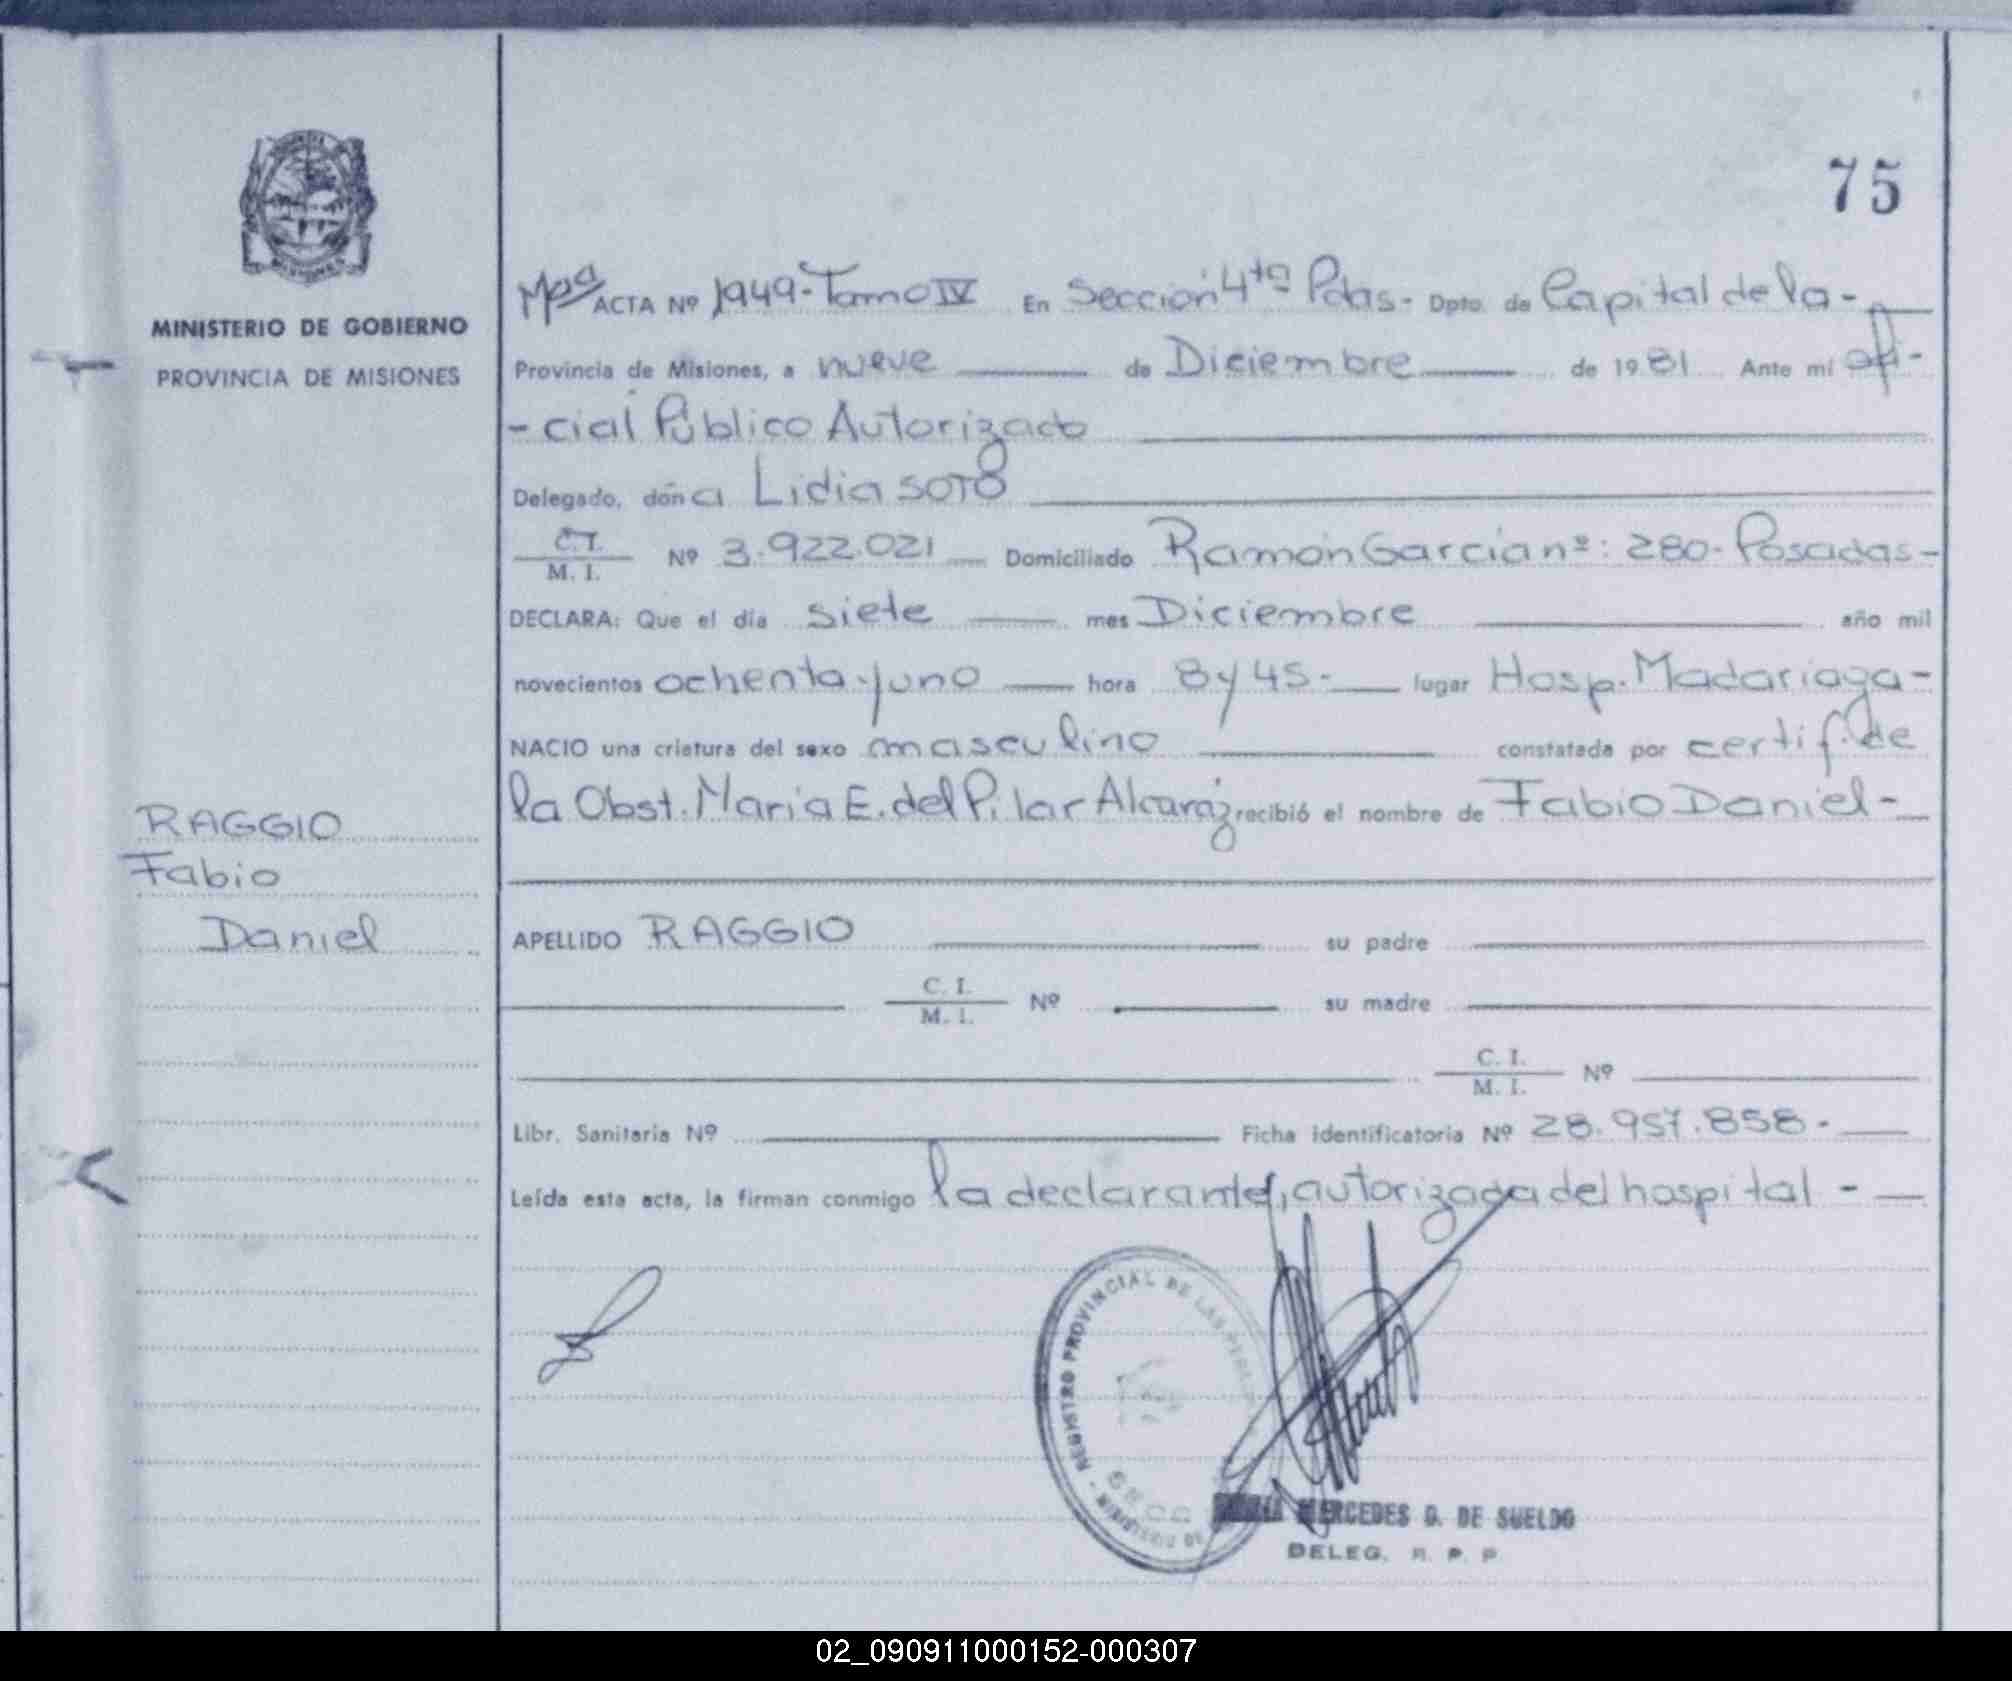 75
MINISTERIO DE GOBIERNO
PROVINCIA DE MISIONES
ACTA Nº 1949-Tomo IV En Sección 4ta Pdas- Dpto. de Capital de la-
Provincia de Misiones, a nueve de Diciembre de 1981 Ante mí ofi-
-cial Público Autorizado
Delegado, doña Lidia SOTO
C.I.
M. I. Nº 3.922.021 Domiciliado Ramón García nº: 280- Posadas-
DECLARA: Que el día siete mes Diciembre año mil
novecientos ochenta y uno hora 8 y 45- lugar Hosp. Madariaga-
NACIO una criatura del sexo masculino constatada por certif. de
la Obst. María E. del Pilar Alcaráz recibió el nombre de Fabio Daniel-
RAGGIO
Fabio
Daniel
APELLIDO RAGGIO su padre
C. I.
M. I. Nº su madre
C. I.
M. I. Nº
Libr. Sanitaria Nº Ficha identificatoria Nº 28.957.858-
Leída esta acta, la firman conmigo la declarante, autorizada del hospital -
REGISTRO PROVINCIAL DE LAS
MINISTERIO DE
MERCEDES G. DE SUELDO
DELEG. R. P. P.
02_090911000152-000307